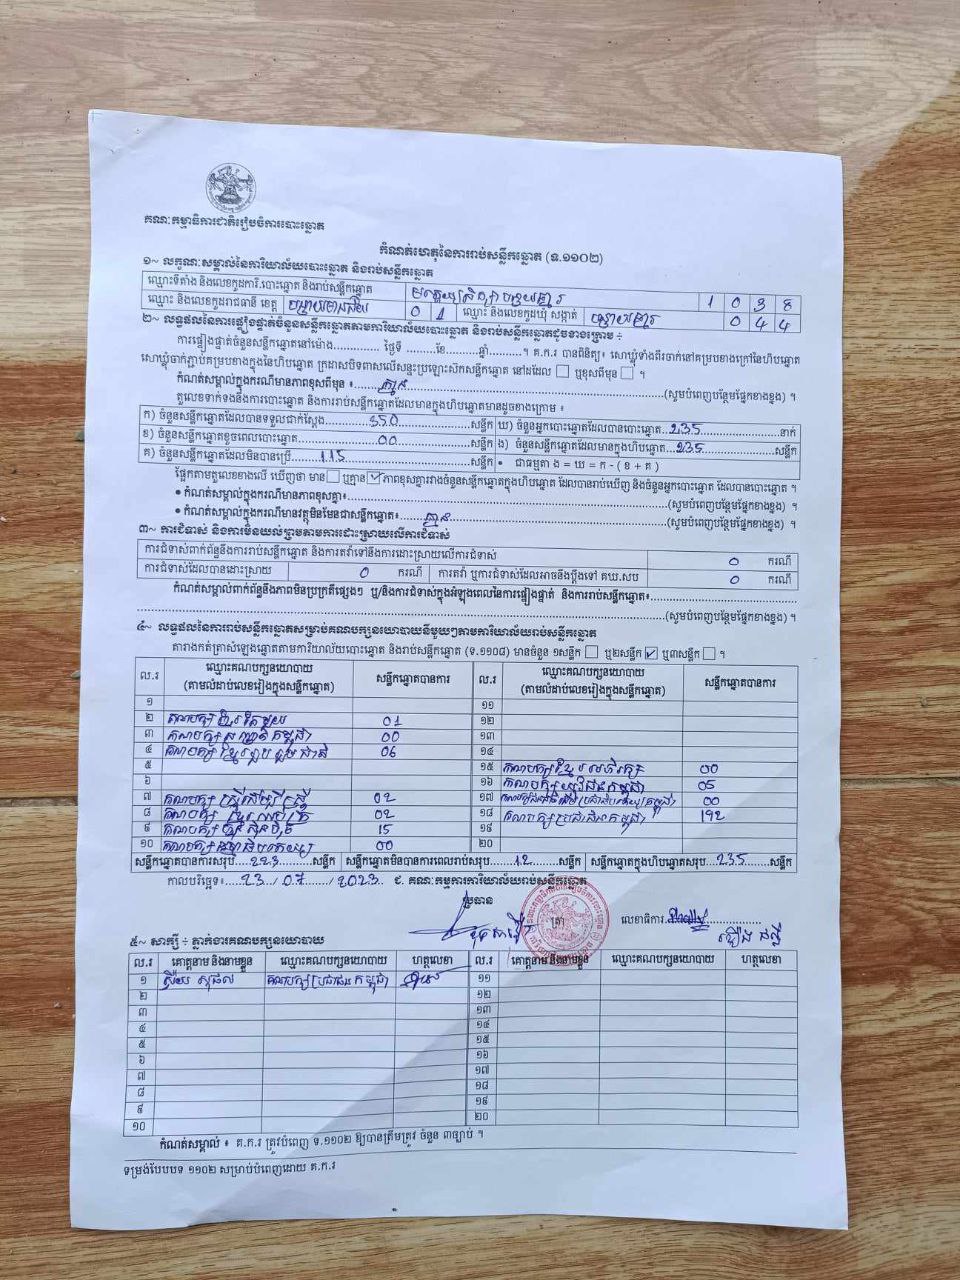 គណៈកម្មាធិការជាតិរៀបចំការបោះឆ្នោត
កំណត់ហេតុនៃការរាប់សន្លឹកឆ្នោត (ទ.១១០២)
១~ លក្ខណៈសម្គាល់នៃការិយាល័យបោះឆ្នោត និងរាប់សន្លឹកឆ្នោត
ឈ្មោះទីតាំង និងលេខកូដការិ.បោះឆ្នោត និងរាប់សន្លឹកឆ្នោត 1 0 3 8
ឈ្មោះ និងលេខកូដរាជធានី ខេត្ត បន្ទាយមានជ័យ 0 1 ឈ្មោះ និងលេខកូដឃុំ សង្កាត់ 0 4 4
២~ លទ្ធផលនៃការផ្ទៀងផ្ទាត់ចំនួនសន្លឹកឆ្នោតតាមការិយាល័យបោះឆ្នោត និងរាប់សន្លឹកឆ្នោតដូចខាងក្រោម ÷
ការផ្ទៀងផ្ទាត់ចំនួនសន្លឹកឆ្នោតនៅម៉ោង............. ថ្ងៃទី .........ខែ..........ឆ្នាំ..........។ គ.ក.រ បានពិនិត្យ៖ សោឃ្លុំទាំងពីរចាក់នៅគម្របខាងក្រៅនៃហិបឆ្នោត
សោឃ្លុំចាក់ភ្ជាប់គម្របខាងក្នុងនៃហិបឆ្នោត ក្រដាសបិទពាសលើសន្ទះប្រឡោះសិកសន្លឹកឆ្នោត នៅដដែល ☐ ឬខុសពីមុន ☐ ។
កំណត់សម្គាល់ក្នុងករណីមានភាពខុសពីមុន ៖ គ្មាន (សូមបំពេញបន្ថែមខាងខ្នង) ។
តួលេខទាក់ទងនឹងការបោះឆ្នោត និងការរាប់សន្លឹកឆ្នោតដែលមានក្នុងហិបឆ្នោតមានដូចខាងក្រោម ៖
ក) ចំនួនសន្លឹកឆ្នោតដែលបានទទួលជាក់ស្តែង 350 សន្លឹក ឃ) ចំនួនអ្នកបោះឆ្នោតដែលបានបោះឆ្នោត 235 នាក់
ខ) ចំនួនសន្លឹកឆ្នោតខូចពេលបោះឆ្នោត 00 សន្លឹក ង) ចំនួនសន្លឹកឆ្នោតដែលមានក្នុងហិបឆ្នោត 235 សន្លឹក
គ) ចំនួនសន្លឹកឆ្នោតដែលមិនបានប្រើ 115 សន្លឹក • ជាធម្មតា ង = ឃ = ក - ( ខ + គ )
ផ្អែកតាមតួលេខខាងលើ ឃើញថា មាន ☐ ឬគ្មាន ☑ ភាពខុសគ្នារវាងចំនួនសន្លឹកឆ្នោតក្នុងហិបឆ្នោត ដែលបានរាប់ឃើញ និងចំនួនអ្នកបោះឆ្នោត ដែលបានបោះឆ្នោត ។
• កំណត់សម្គាល់ក្នុងករណីមានភាពខុសគ្នា៖ (សូមបំពេញបន្ថែមផ្នែកខាងខ្នង) ។
• កំណត់សម្គាល់ក្នុងករណីមានវត្ថុមិនមែនជាសន្លឹកឆ្នោត៖ គ្មាន (សូមបំពេញបន្ថែមផ្នែកខាងខ្នង) ។
៣~ ការជំទាស់ និងការមិនយល់ព្រមតាមការដោះស្រាយលើការជំទាស់
ការជំទាស់ពាក់ព័ន្ធនឹងការរាប់សន្លឹកឆ្នោត និងការតវ៉ាទៅនឹងការដោះស្រាយលើការជំទាស់ 0 ករណី
ការជំទាស់ដែលបានដោះស្រាយ 0 ករណី ការតវ៉ា ឬការជំទាស់ដែលអាចនឹងប្តឹងទៅ គឃ.សប 0 ករណី
កំណត់សម្គាល់ពាក់ព័ន្ធនឹងភាពមិនប្រក្រតីផ្សេងៗ ឬ/និងការជំទាស់ក្នុងអំឡុងពេលនៃការផ្ទៀងផ្ទាត់ និងការរាប់សន្លឹកឆ្នោត៖
(សូមបំពេញបន្ថែមផ្នែកខាងខ្នង) ។
៤~ លទ្ធផលនៃការរាប់សន្លឹកឆ្នោតសម្រាប់គណបក្សនយោបាយនីមួយៗតាមការិយាល័យរាប់សន្លឹកឆ្នោត
តារាងកត់ត្រាសំឡេងឆ្នោតតាមការិយាល័យបោះឆ្នោត និងរាប់សន្លឹកឆ្នោត (ទ.១១០៨) មានចំនួន ១សន្លឹក ☐ ឬ២សន្លឹក ☑ ឬ៣សន្លឹក ☐ ។
ល.រ ឈ្មោះគណបក្សនយោបាយ (តាមលំដាប់លេខរៀងក្នុងសន្លឹកឆ្នោត) សន្លឹកឆ្នោតបានការ ល.រ ឈ្មោះគណបក្សនយោបាយ (តាមលំដាប់លេខរៀងក្នុងសន្លឹកឆ្នោត) សន្លឹកឆ្នោតបានការ
១ ១១
២ គណបក្ស ខ្មែរតែមួយ 01 ១២
៣ គណបក្ស សញ្ជាតិកម្ពុជា 00 ១៣
៤ គណបក្ស ខ្មែររួបរួមជាតិ 06 ១៤
៥ ១៥ គណបក្ស ខ្មែរអភិរក្ស 00
៦ ១៦ គណបក្ស យុវជនកម្ពុជា 05
៧ គណបក្ស ស្ត្រីដើម្បីស្ត្រី 02 ១៧ 00
៨ គណបក្ស 02 ១៨ គណបក្ស ប្រជាជនកម្ពុជា 192
៩ គណបក្ស ហ្វ៊ុនស៊ិនប៉ិច 15 ១៩
១០ គណបក្ស 00 ២០
សន្លឹកឆ្នោតបានការសរុប 223 សន្លឹក សន្លឹកឆ្នោតមិនបានការពេលរាប់សរុប 12 សន្លឹក សន្លឹកឆ្នោតក្នុងហិបឆ្នោតសរុប 235 សន្លឹក
កាលបរិច្ឆេទ៖ 23 / 07 / 2023 ជ. គណៈកម្មការការិយាល័យរាប់សន្លឹកឆ្នោត
ប្រធាន ត្រា លេខាធិការ
៥~ សាក្សី ÷ ភ្នាក់ងារគណបក្សនយោបាយ
ល.រ គោត្តនាម និងនាមខ្លួន ឈ្មោះគណបក្សនយោបាយ ហត្ថលេខា ល.រ គោត្តនាម និងនាមខ្លួន ឈ្មោះគណបក្សនយោបាយ ហត្ថលេខា
១ គណបក្ស ប្រជាជនកម្ពុជា ១១
២ ១២
៣ ១៣
៤ ១៤
៥ ១៥
៦ ១៦
៧ ១៧
៨ ១៨
៩ ១៩
១០ ២០
កំណត់សម្គាល់ ៖ គ.ក.រ ត្រូវបំពេញ ទ.១១០២ ឱ្យបានត្រឹមត្រូវ ចំនួន ៣ច្បាប់ ។
ទម្រង់បែបបទ ១១០២ សម្រាប់បំពេញដោយ គ.ក.រ